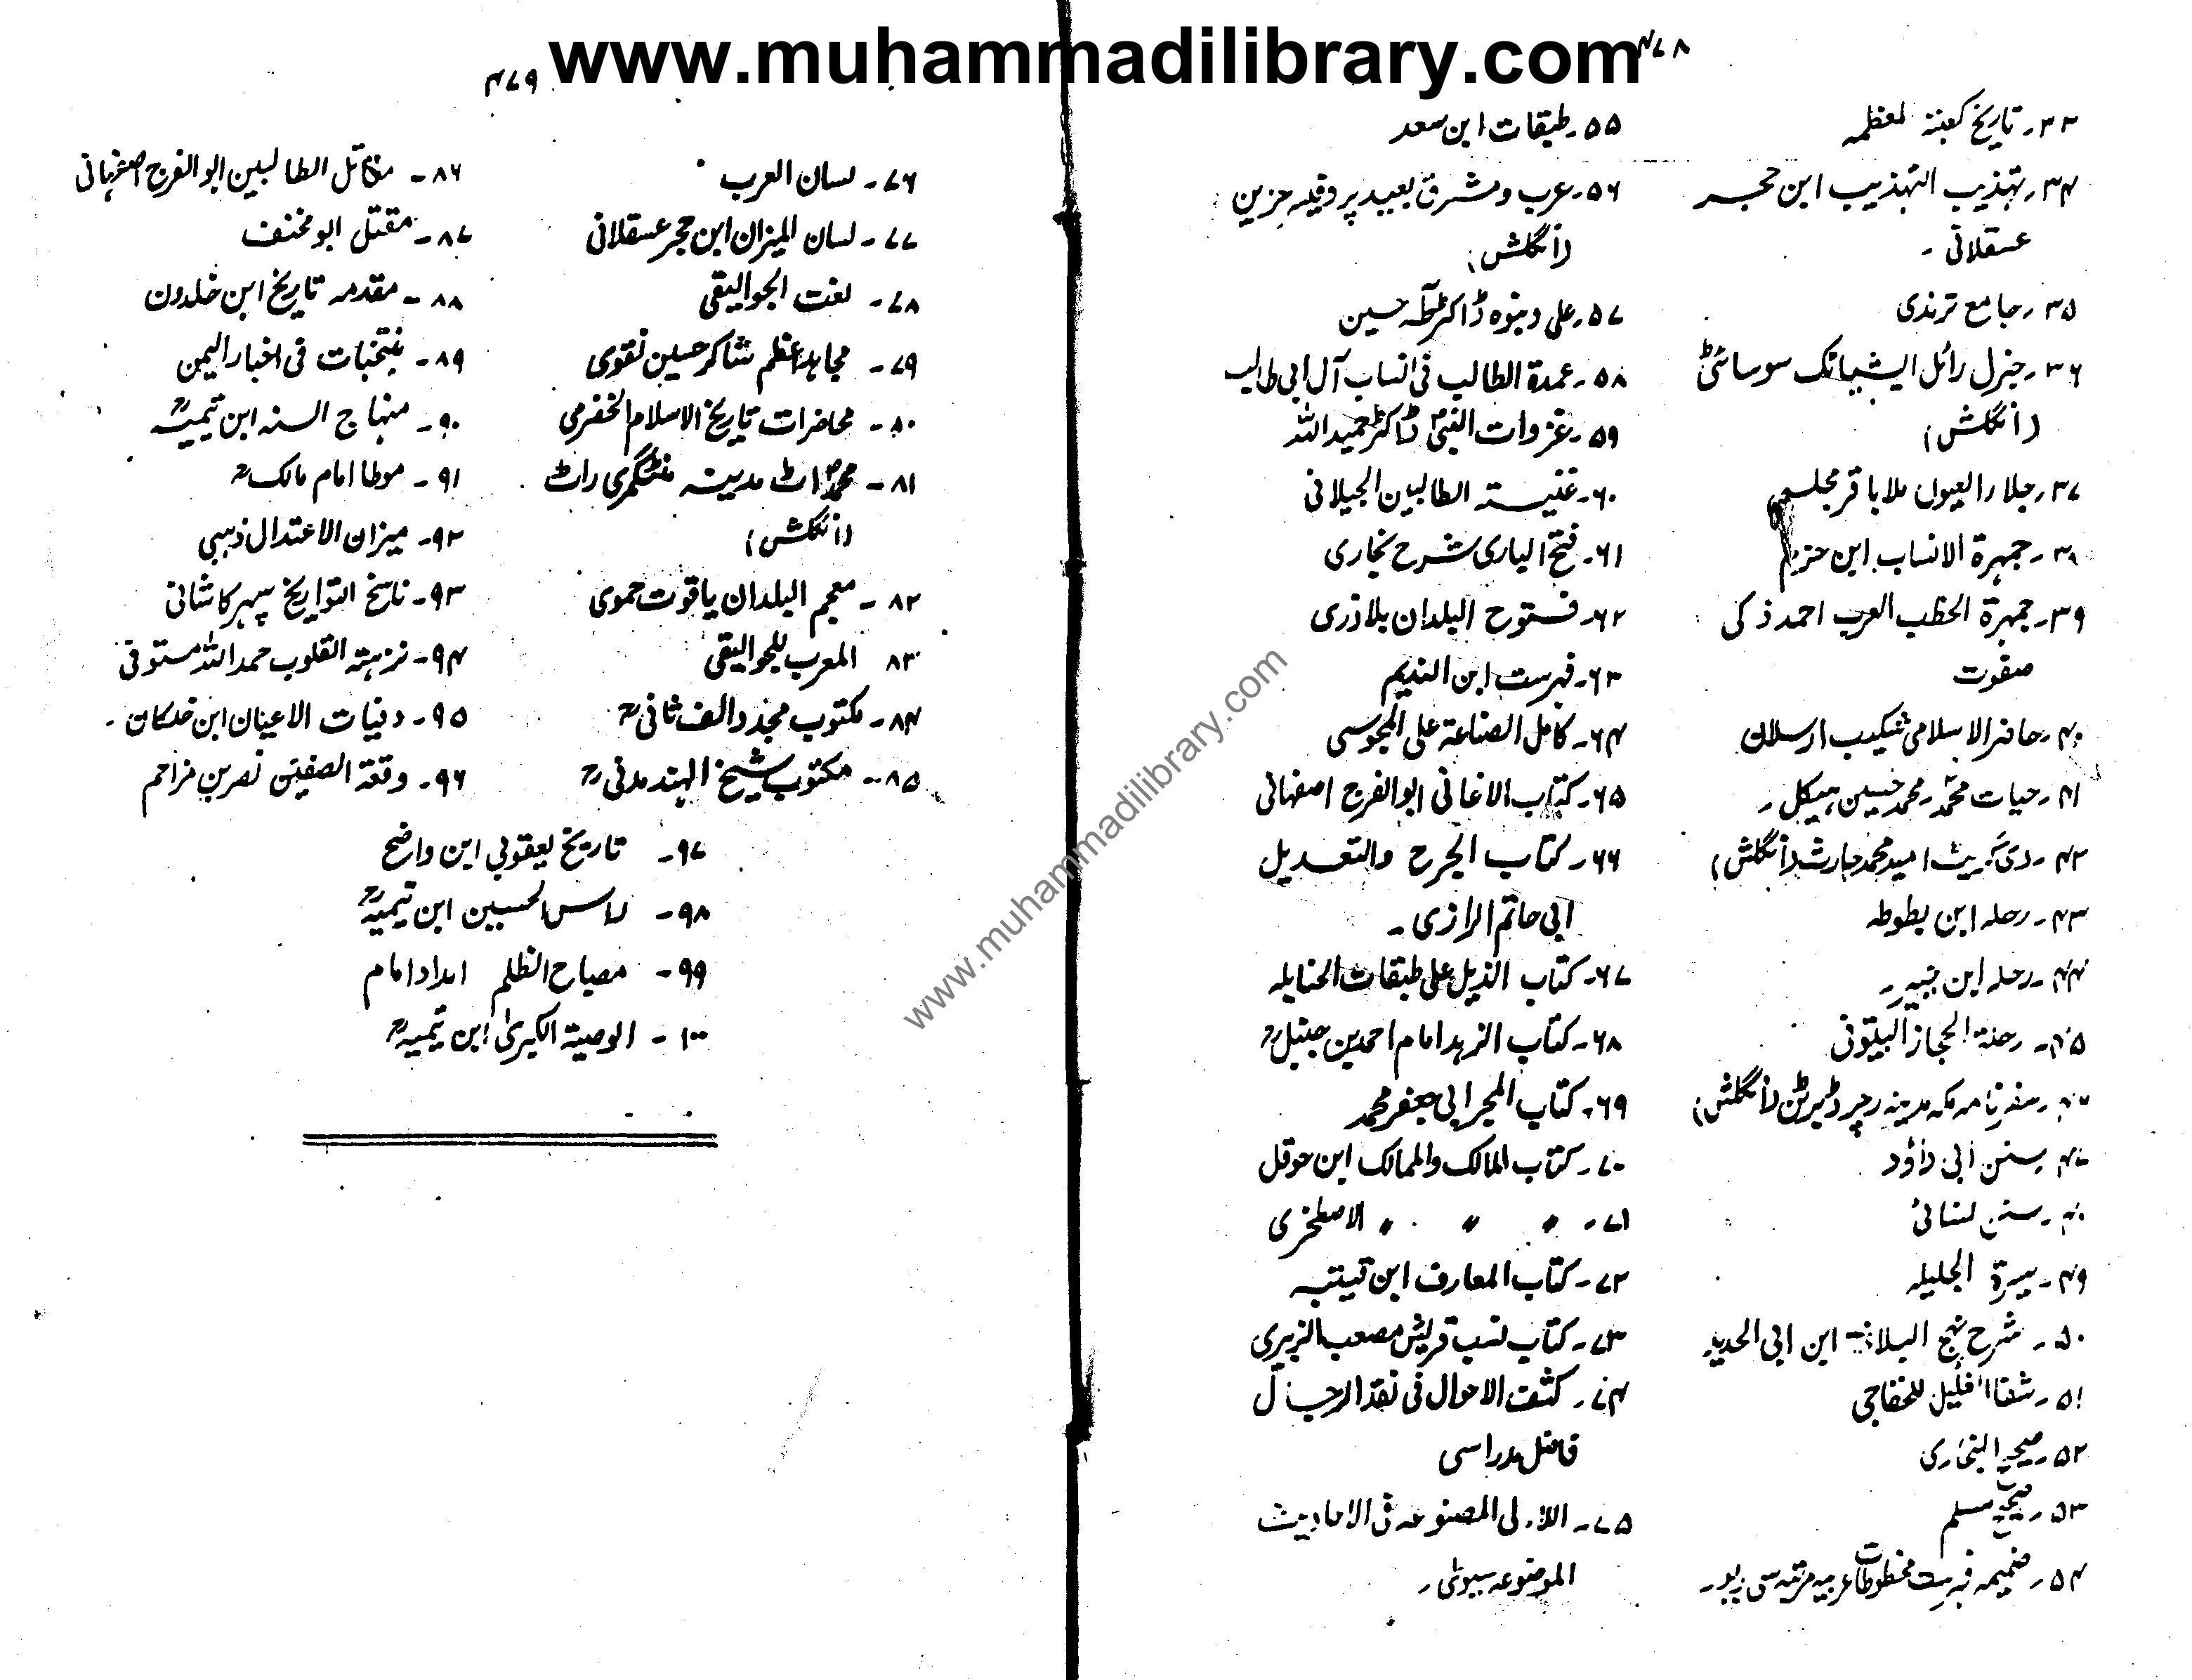 www.muhammadilibrary.com
۴۷۸
۳۳۔ تاریخ کعبہ معظمہ
۳۴۔ تہذیب التہذیب ابن حجر
عسقلانی ۔
۳۵۔ جامع ترمذی
۳۶۔ جنرل رائل ایشیاٹک سوسائٹی
(انگلش)
۳۷۔ جلاء العیون ملا باقر مجلسی
۳۸۔ جمہرۃ الانساب ابن حزم
۳۹۔ جمہرۃ الخطب العرب احمد ذکی
صفوت
۴۰۔ حاضر الاسلامی شکیب ارسلان
۴۱۔ حیات محمدؐ۔ محمد حسین ہیکل ۔
۴۲۔ دی گریٹ امید محمد حارث (انگلش)
۴۳۔ رحلہ ابن بطوطہ
۴۴۔ رحلہ ابن جبیر۔
۴۵۔ رحلۃ الحجاز البتونی
۴۶۔ سفرنامہ مکہ مدینہ رچرڈ برٹن (انگلش)
۴۷۔ سنن ابی داؤد
۴۸۔ سنن نسائی
۴۹۔ سیرۃ الجلیلہ
۵۰۔ شرح نہج البلاغۃ ابن ابی الحدید
۵۱۔ شفا الغلیل للخفاجی
۵۲۔ صحیح البخاری
۵۳۔ صحیح مسلم
۵۴۔ ضمیمہ فہرست مخطوطات عربیہ مرتبہ سی ریو۔
۵۵۔ طبقات ابن سعد
۵۶۔ عرب و مشرق بعید پروفیسر حزین
(انگلش)
۵۷۔ علی و بنوہ ڈاکٹر طہٰ حسین
۵۸۔ عمدۃ الطالب فی انساب آل ابی طالب
۵۹۔ غزوات النبیؐ ڈاکٹر حمید اللہ
۶۰۔ غنیۃ الطالبین الجیلانی
۶۱۔ فتح الباری شرح بخاری
۶۲۔ فتوح البلدان بلاذری
۶۳۔ فہرست ابن الندیم
۶۴۔ کامل الصناعۃ علی المجوسی
۶۵۔ کتاب الاغانی ابوالفرج اصفہانی
۶۶۔ کتاب الجرح والتعدیل
ابی حاتم الرازی ۔
۶۷۔ کتاب الذیل علی طبقات الحنابلہ
۶۸۔ کتاب الزہد امام احمد بن حنبلؒ
۶۹۔ کتاب المحبر ابی جعفر محمد
۷۰۔ کتاب المالک والممالک ابن حوقل
۷۱۔ " " " الاصطخری
۷۲۔ کتاب المعارف ابن قتیبہ
۷۳۔ کتاب نسب قریش مصعب الزبیری
۷۴۔ کشف الاحوال فی نقد الرجال
فاضل مدراسی
۷۵۔ اللاٰلی المصنوعہ فی الاحادیث
الموضوعہ سیوطی ۔
۴۷۹
۷۶۔ لسان العرب
۷۷۔ لسان المیزان ابن حجر عسقلانی
۷۸۔ لغت الجوالیقی
۷۹۔ مجاہد اعظم شاکر حسین نقوی
۸۰۔ محاضرات تاریخ الاسلام الخضرمی
۸۱۔ محمدؐ اٹ مدینہ منٹگمری راٹ
(انگلش)
۸۲۔ معجم البلدان یاقوت حموی
۸۳ المعرب للجوالیقی
۸۴۔ مکتوب مجدد الف ثانیؒ
۸۵۔ مکتوب شیخ الہند مدنیؒ
۸۶۔ مقاتل الطالبین ابوالفرج اصفہانی
۸۷۔ مقتل ابو مخنف
۸۸۔ مقدمہ تاریخ ابن خلدون
۸۹۔ منتخبات فی اخبار الیمن
۹۰۔ منہاج السنہ ابن تیمیہؒ
۹۱۔ موطا امام مالکؒ
۹۲۔ میزان الاعتدال ذہبی
۹۳۔ ناسخ التواریخ سپہر کاشانی
۹۴۔ نزہتہ القلوب حمد اللہ مستوفی
۹۵۔ وفیات الاعیان ابن خلکان ۔
۹۶۔ وقعۃ الصفین نصر بن مزاحم
۹۷۔ تاریخ یعقوبی ابن واضح
۹۸۔ راس الحسین ابن تیمیہؒ
۹۹۔ مصباح الظلم امداد امام
۱۰۰۔ الوصیۃ الکبریٰ ابن تیمیہؒ
www.muhammadilibrary.com